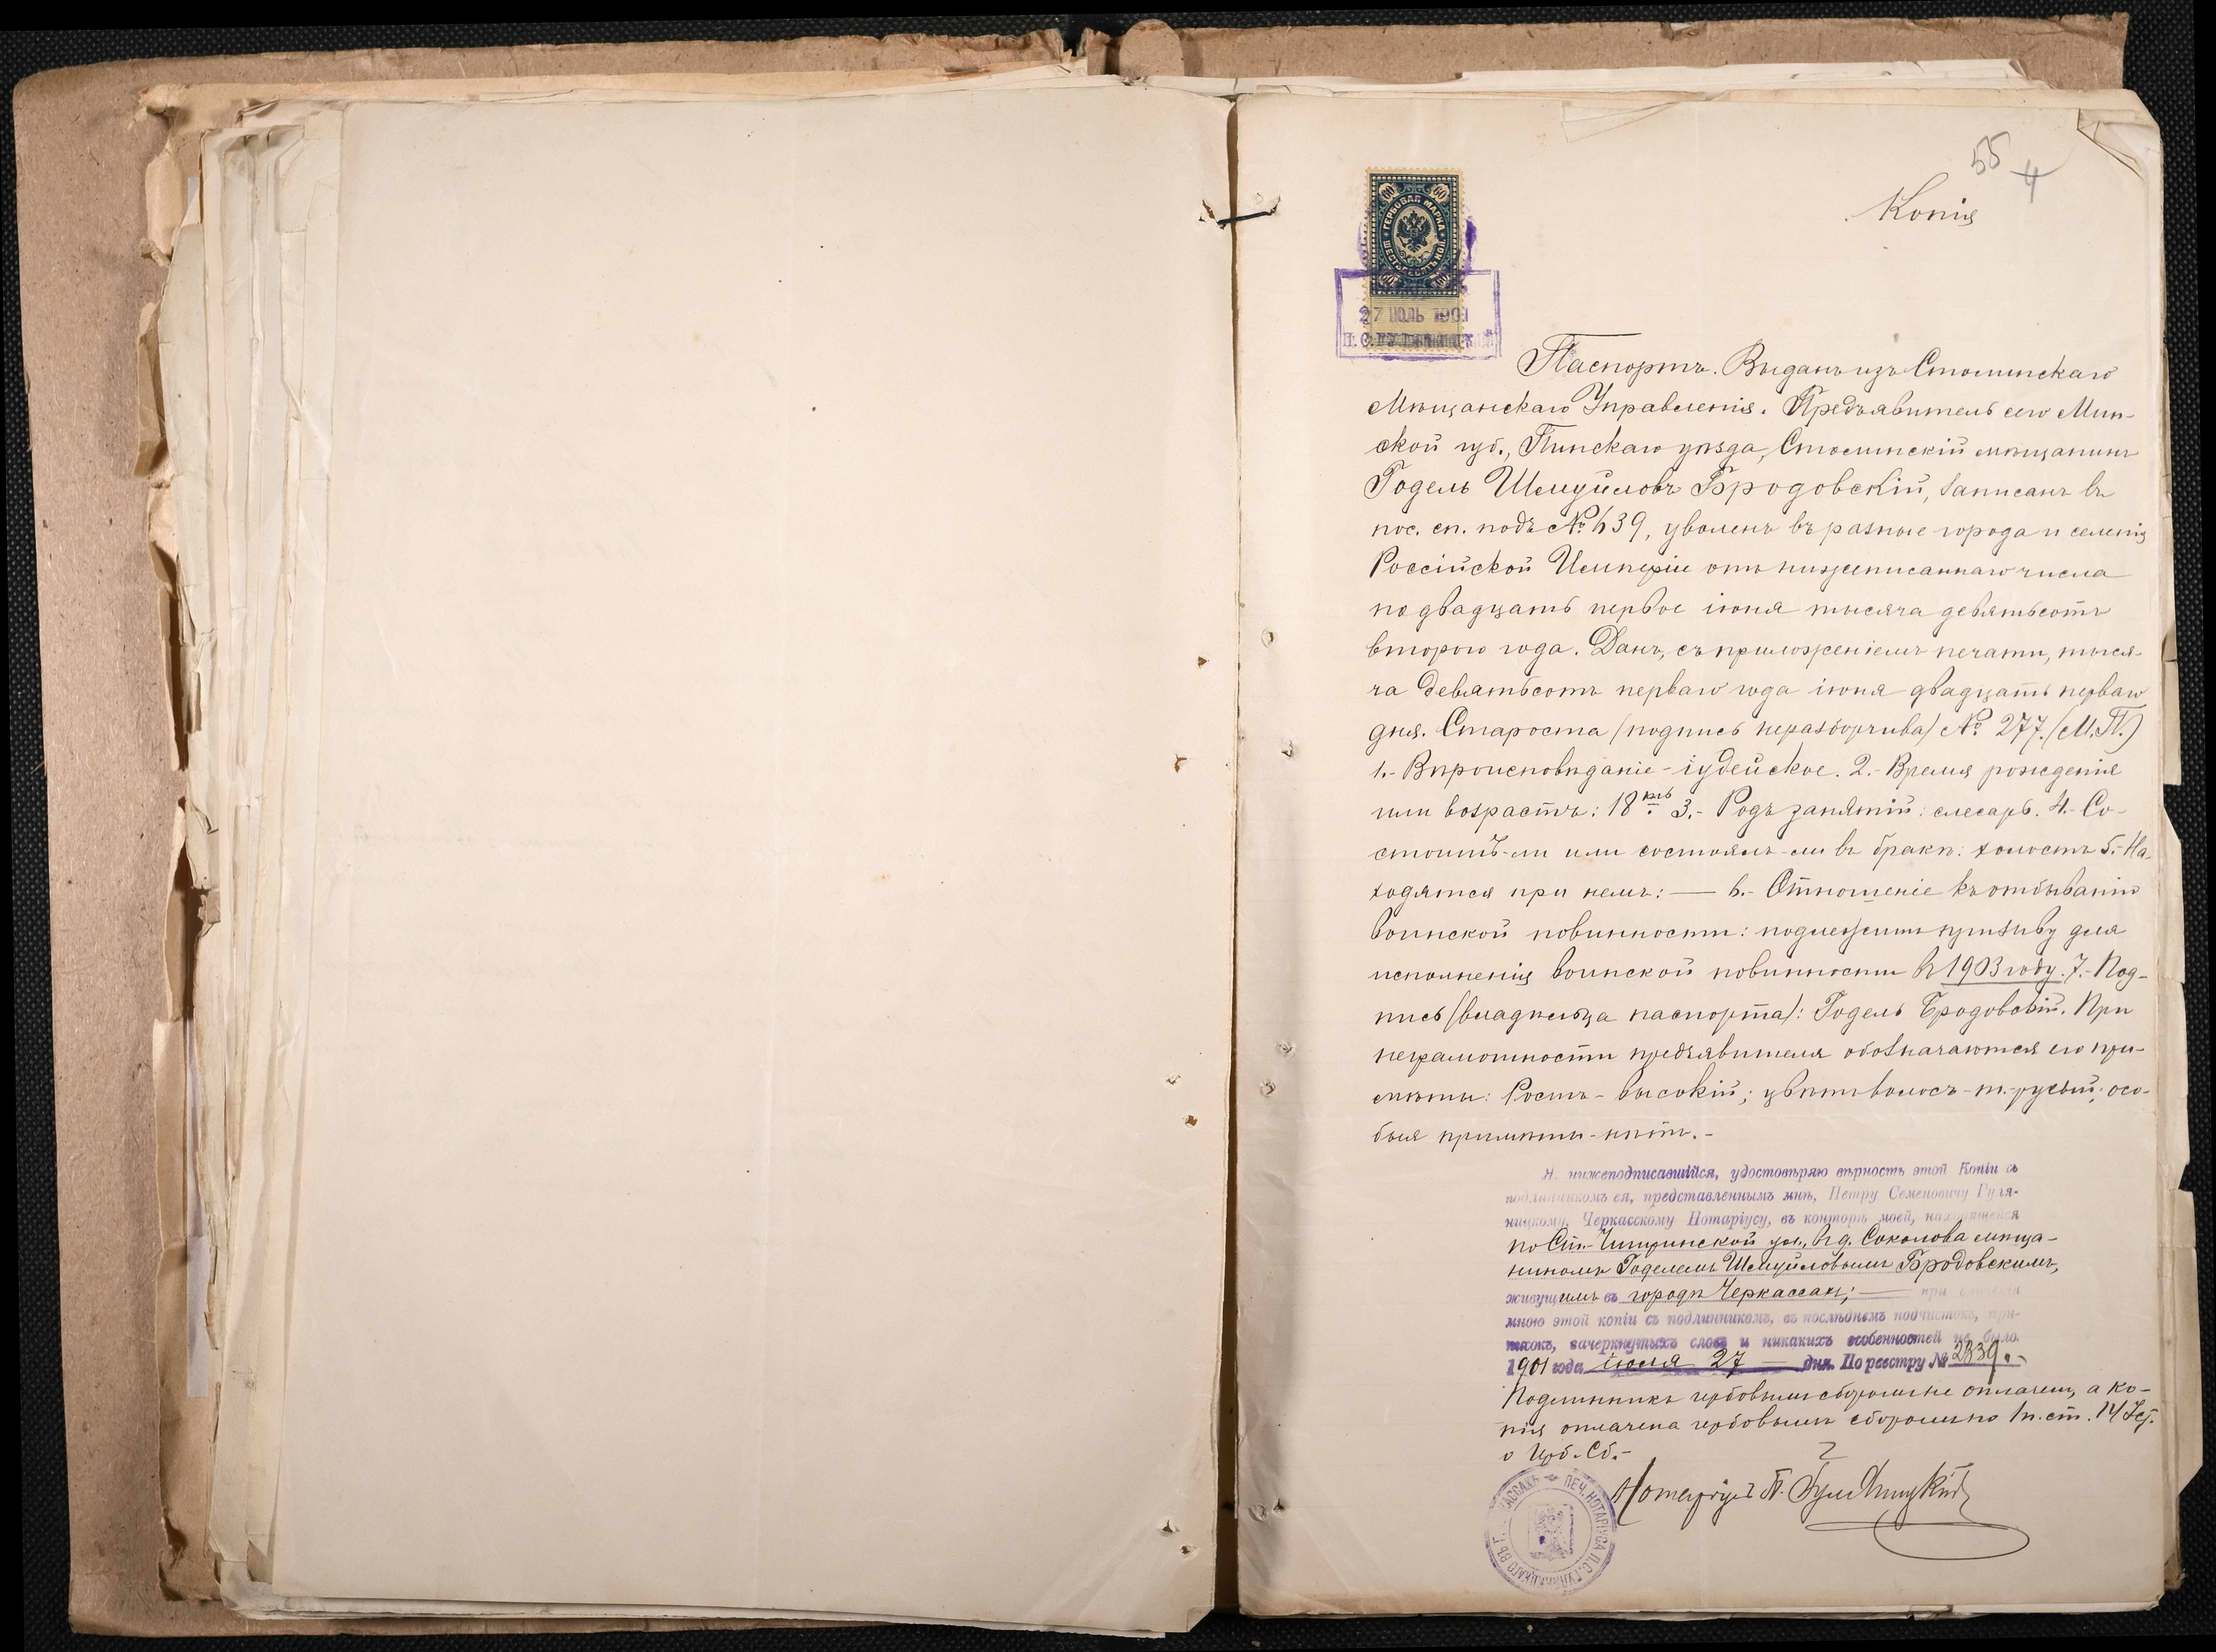 55
4
Копія
60 60
ГЕРБОВАЯ МАРКА
ШЕСТЬДЕСЯТЪ КОП.
60 60
27 ІЮЛЬ 1901
П. С.
Паспортъ. Выданъ изъ Столинскаго
Мѣщанскаго Управленія. Предъявитель сего Мин-
ской губ., Пинскаго уѣзда, Столинскій мѣщанинъ
Годель Шмуйловъ Бродовскій, записанъ въ
пос. сп. подъ № 639, уволенъ въ разные города и селенія
Россійской Имперіи отъ нижеписаннаго числа
по двадцать первое іюня тысяча девятьсотъ
второго года. Данъ, съ приложеніемъ печати, тыся-
ча девятьсотъ перваго года іюня двадцать перваго
дня. Староста /подпись неразборчива/ № 277. (М.П.)
1.- Вѣроисповѣданіе - іудейское. 2.- Время рожденія
или возрастъ: 18 лѣтъ. 3.- Родъ занятій: слесарь. 4.- Со-
стоитъ-ли или состоялъ-ли въ бракѣ: холостъ 5.- На-
ходятся при немъ: — 6.- Отношеніе къ отбыванію
воинской повинности: подлежитъ призыву для
исполненія воинской повинности въ 1903 году. 7.- Под-
пись /владѣльца паспорта/: Годель Бродовскій. При
неграмотности предъявителя обозначаются его при-
мѣты: Ростъ - высокій; цвѣтъ волосъ - т.-русый; осо-
быя примѣты - нѣтъ. -
Я, нижеподписавшійся, удостовѣряю вѣрность этой Копіи съ
подлинникомъ ея, представленнымъ мнѣ, Петру Семеновичу Гуля-
ницкому, Черкасскому Нотаріусу, въ конторѣ моей, находящейся
по Ст.-Чигиринской ул., въ д. Соколова мѣща-
ниномъ Годелемъ Шмуйловымъ Бродовскимъ,
живущимъ въ городѣ Черкассахъ; — при сличеніи
мною этой копіи съ подлинникомъ, въ послѣднемъ подчистокъ, при-
писокъ, зачеркнутыхъ словъ и никакихъ особенностей не было.
1901 года іюля 27 — дня. По реестру № 2839.-
Подлинникъ гербовымъ сборомъ не оплаченъ, а ко-
пія оплачена гербовымъ сборомъ по 1 п. ст. 14 Уст.
о Герб. Сб. -
Нотаріусъ П. Гуляницкій
ПЕЧ. НОТАРІУСА П.С. ГУЛЯНИЦКАГО ВЪ Г. ЧЕРКАССАХЪ